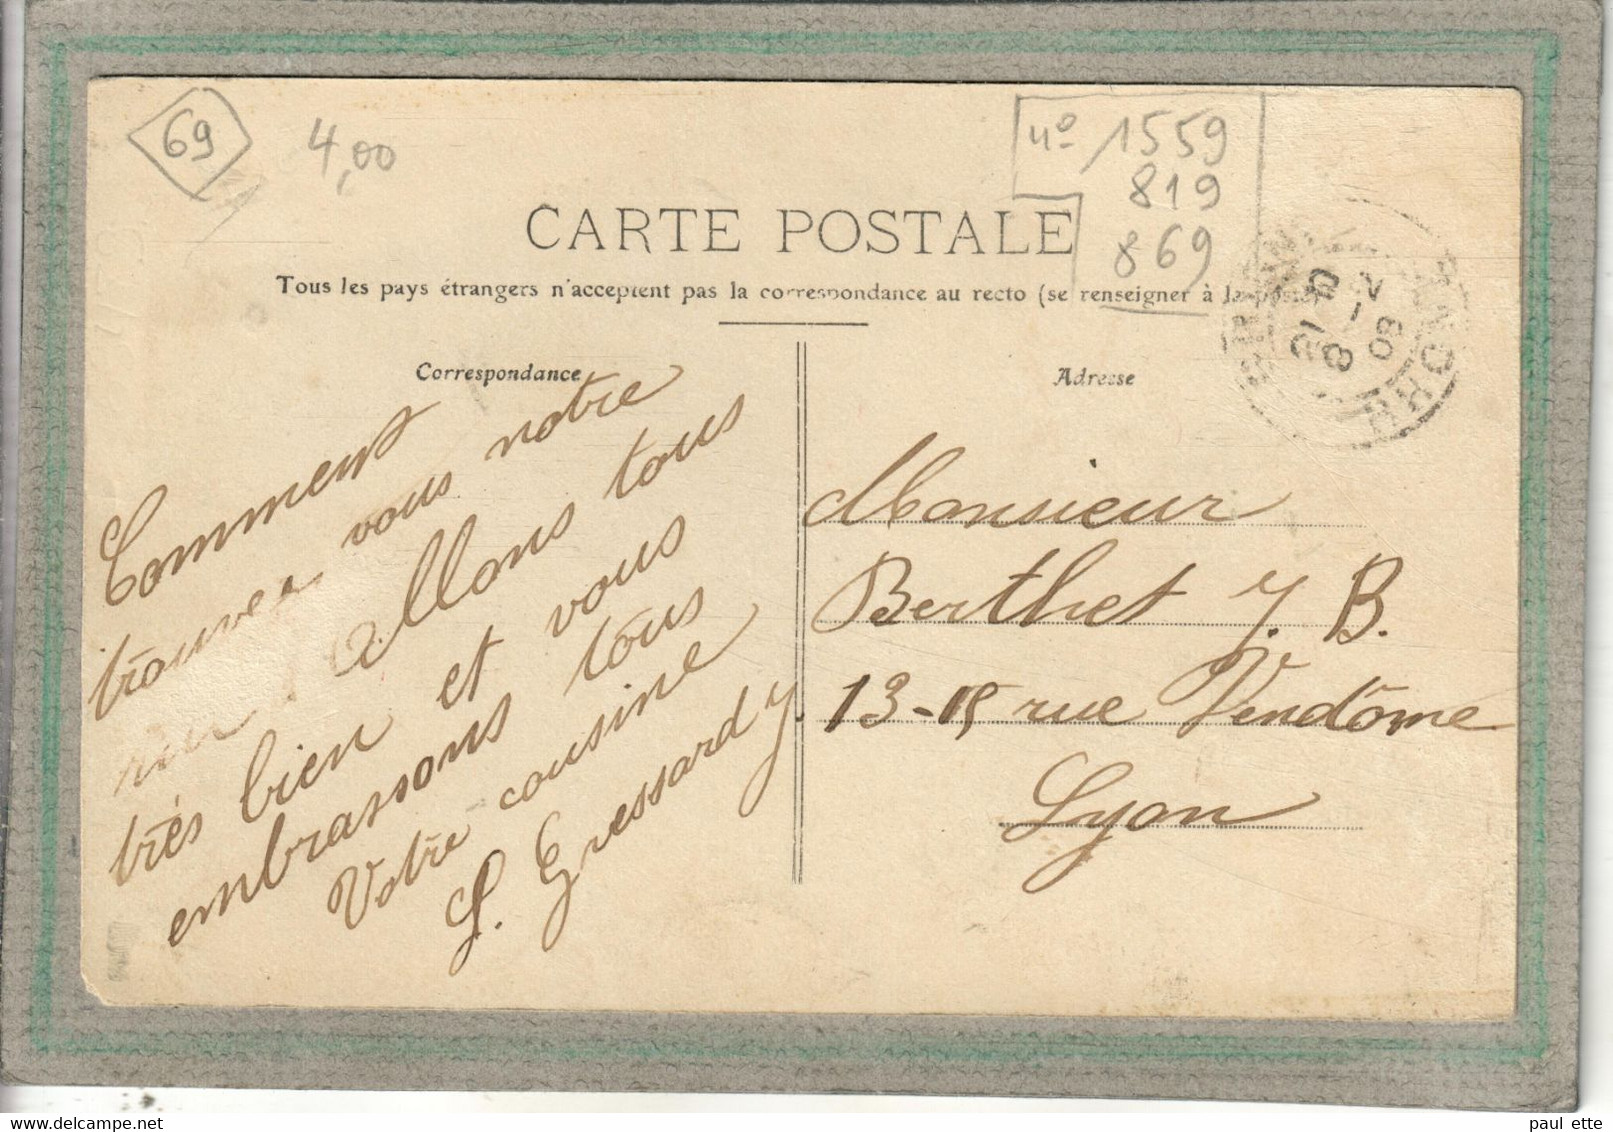 69
4,00
n° 1559
819
869
CARTE POSTALE
Tous les pays étrangers n'acceptent pas la correspondance au recto (se renseigner à la poste)
Correspondance
Adresse
Comment
trouvez vous notre
Allons tous
très bien et vous
embrassons tous
Votre cousine
L. Gressardy
Monsieur
Berthet J. B.
13-15 rue Vendôme
Lyon
08
paul ette